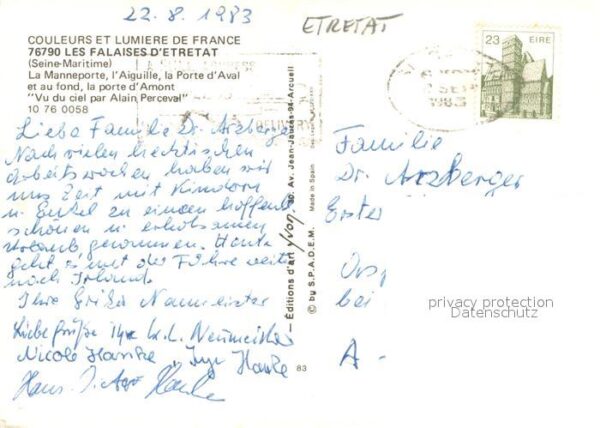 22.8.1983
ETRETAT
COULEURS ET LUMIERE DE FRANCE
76790 LES FALAISES D'ETRETAT
(Seine-Maritime)
La Manneporte, l'Aiguille, la Porte d'Aval
et au fond, la porte d'Amont
"Vu du ciel par Alain Perceval"
10 76 0058
Liebe Familie Dr. Arzberger
Nach vielen hektischen
Arbeitswochen haben wir
uns Zeit mit Kindern
u. Enkel zu einem hoffentl.
schönen u. erholsamen
Urlaub genommen. Heute
geht es mit der Fähre weiter
nach Irland.
Ihre
Liebe Grüße Ihre Neumeister
Nicole Hanke, Inge Hanke
Hans
— Éditions d'art yvon, 30, Av. Jean-Jaurès-94-Arcueil
© by S.P.A.D.E.M. Made in Spain
83
23 EIRE
1983
Familie
Dr. Arzberger
bei
A-
privacy protection
Datenschutz